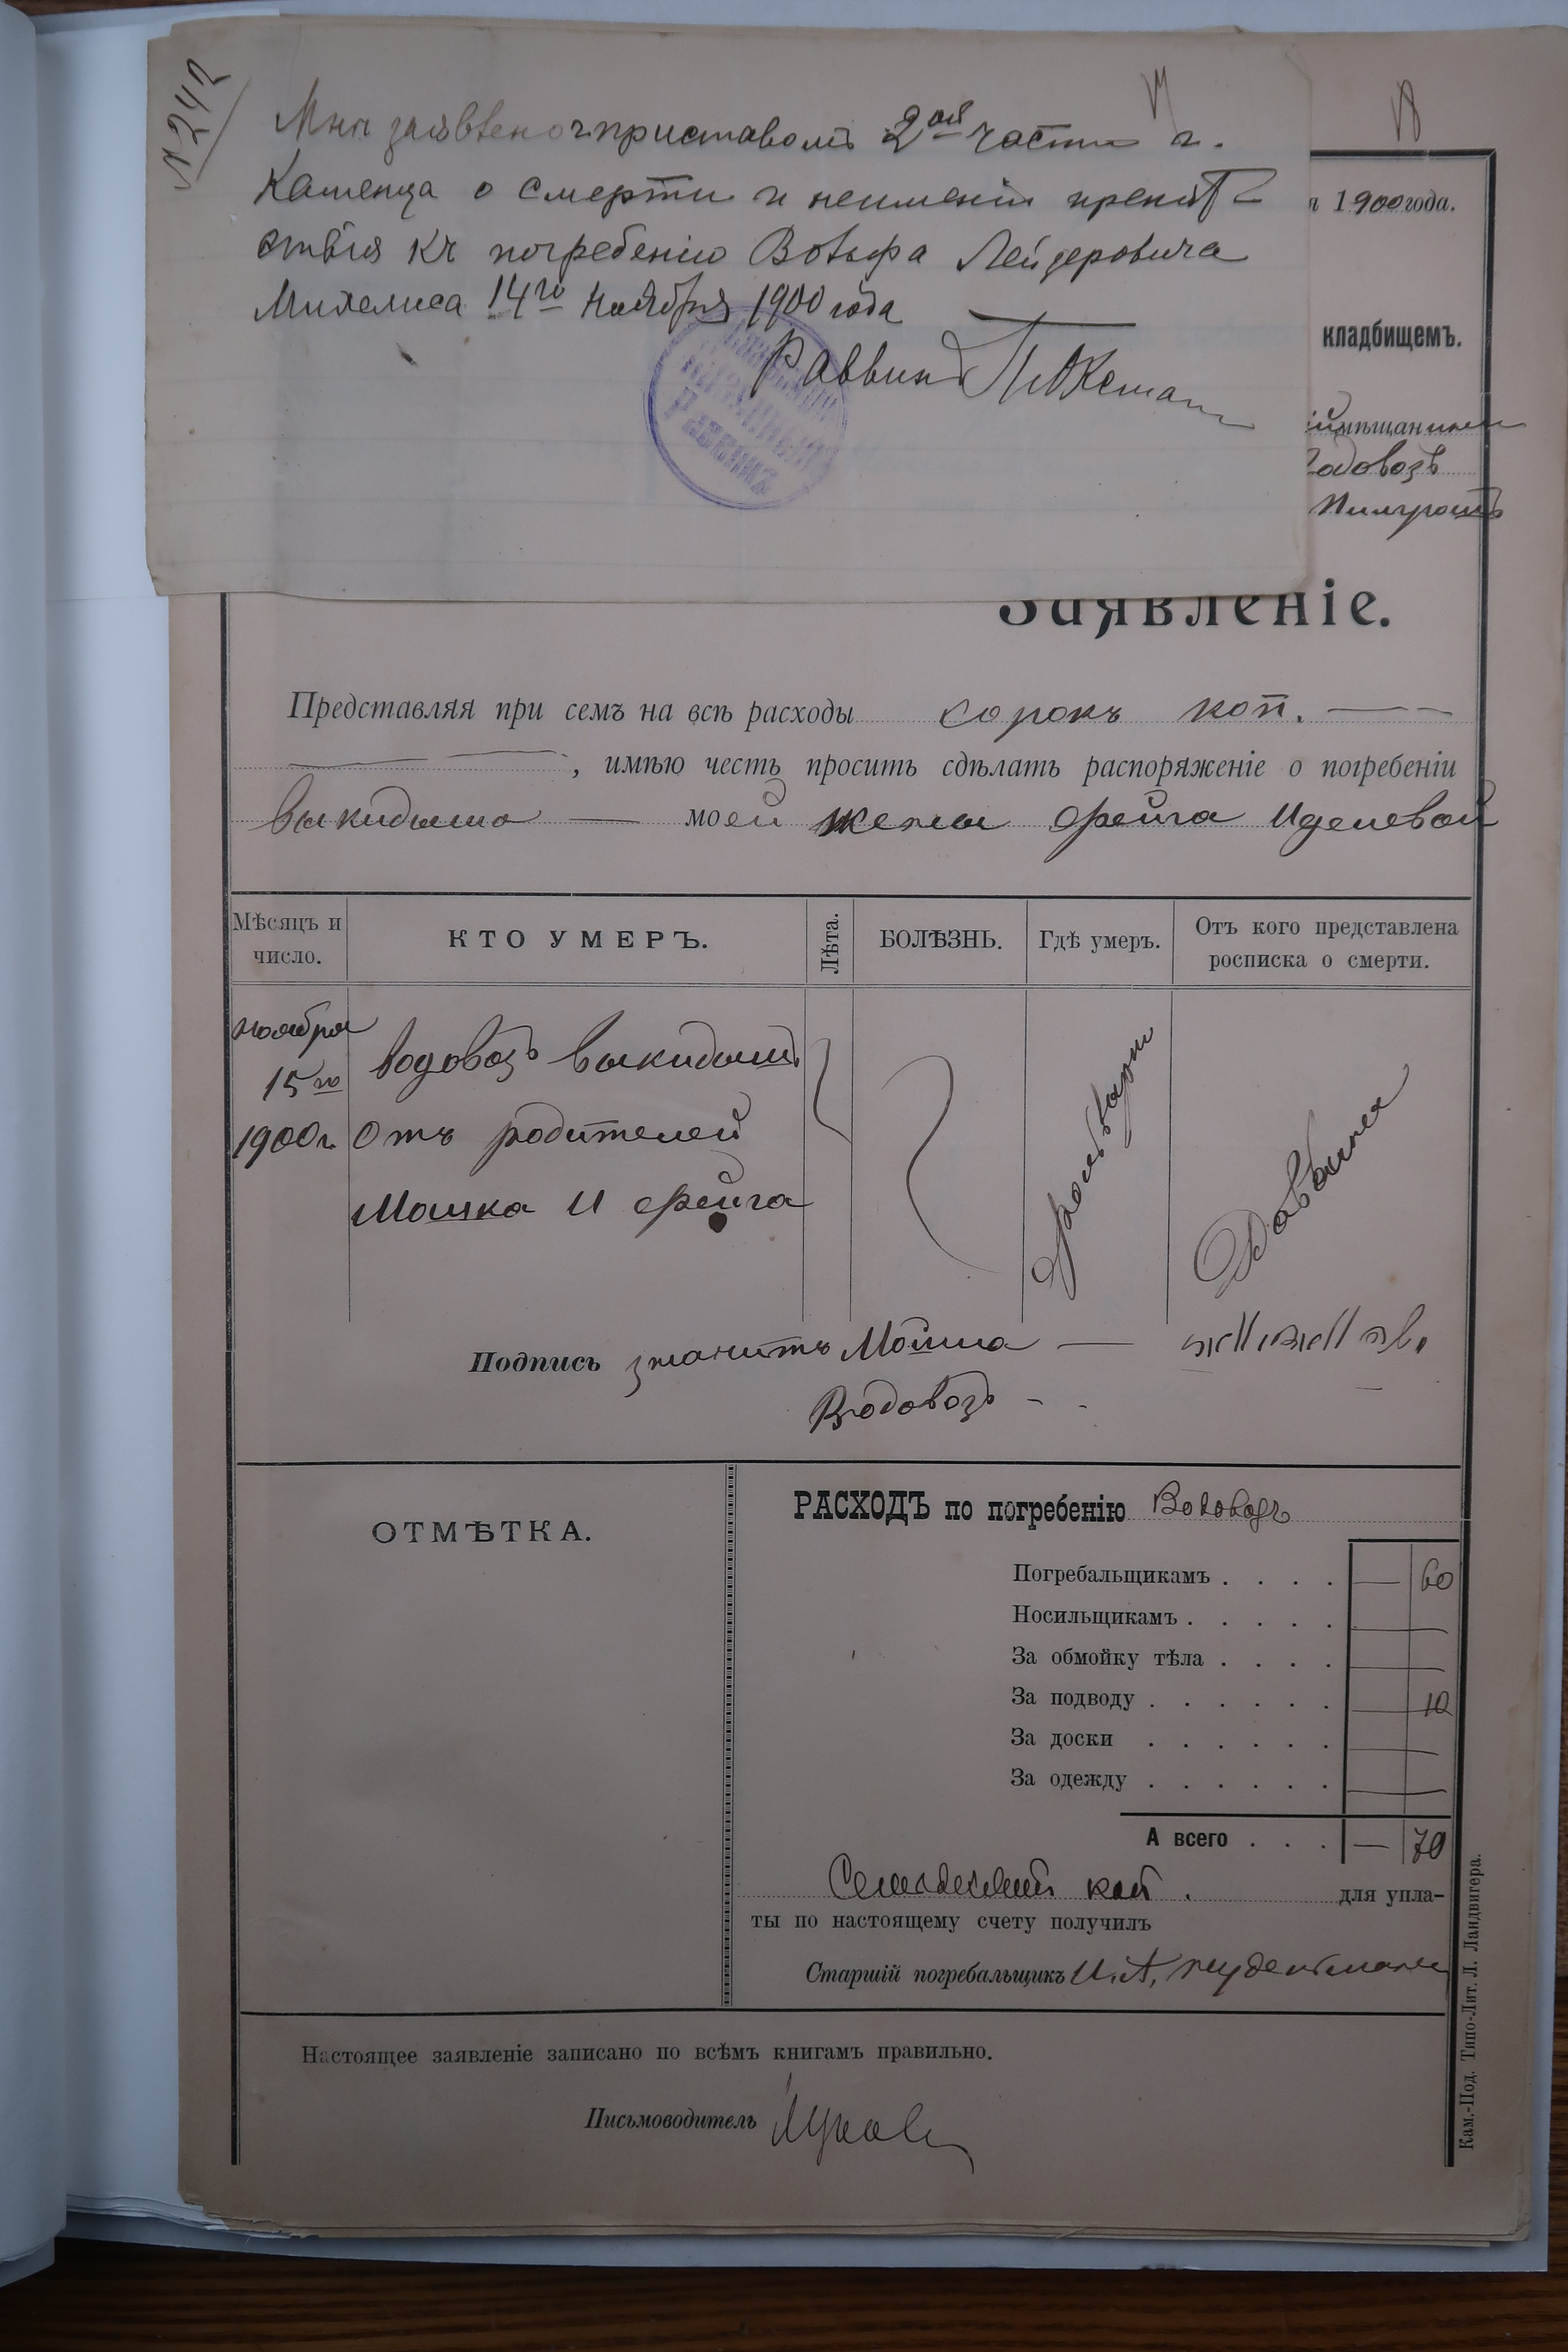 № 242
Мнѣ заявлено приставомъ 2ой части г.
Каменца о смерти и неимѣніи препят-
ствія къ погребенію Вольфа Лейзеровича
Михелиса 14го Ноября 1900 года
Раввинъ
1900 года.
кладбищемъ.
мѣщанина
Водовозъ
Заявленіе.
Представляя при семъ на всѣ расходы сорокъ коп.
, имѣю честь просить сдѣлать распоряженіе о погребеніи
выкидыша — моей жены Фейга Иделевой
Мѣсяцъ и число. КТО УМЕРЪ. Лѣта. БОЛѢЗНЬ. Гдѣ умеръ. Отъ кого представлена росписка о смерти.
ноября водовозъ выкидышъ
15го
1900 г. Отъ родителей
Мошка и Фейга
Фольварки
Подпись значитъ Мошко —
Водовозъ - -
ОТМѢТКА.
РАСХОДЪ по погребенію Водовозъ
Погребальщикамъ . . . . — 60
Носильщикамъ . . . . .
За обмойку тѣла . . . .
За подводу . . . . . . 10
За доски . . . . . .
За одежду . . . . . .
А всего . . . — 70
Семьдесятъ коп. для упла-
ты по настоящему счету получилъ
Старшій погребальщикъ И. А.
Настоящее заявленіе записано по всѣмъ книгамъ правильно.
Письмоводитель
Кам.-Под. Типо-Лит. Л. Ландвигера.